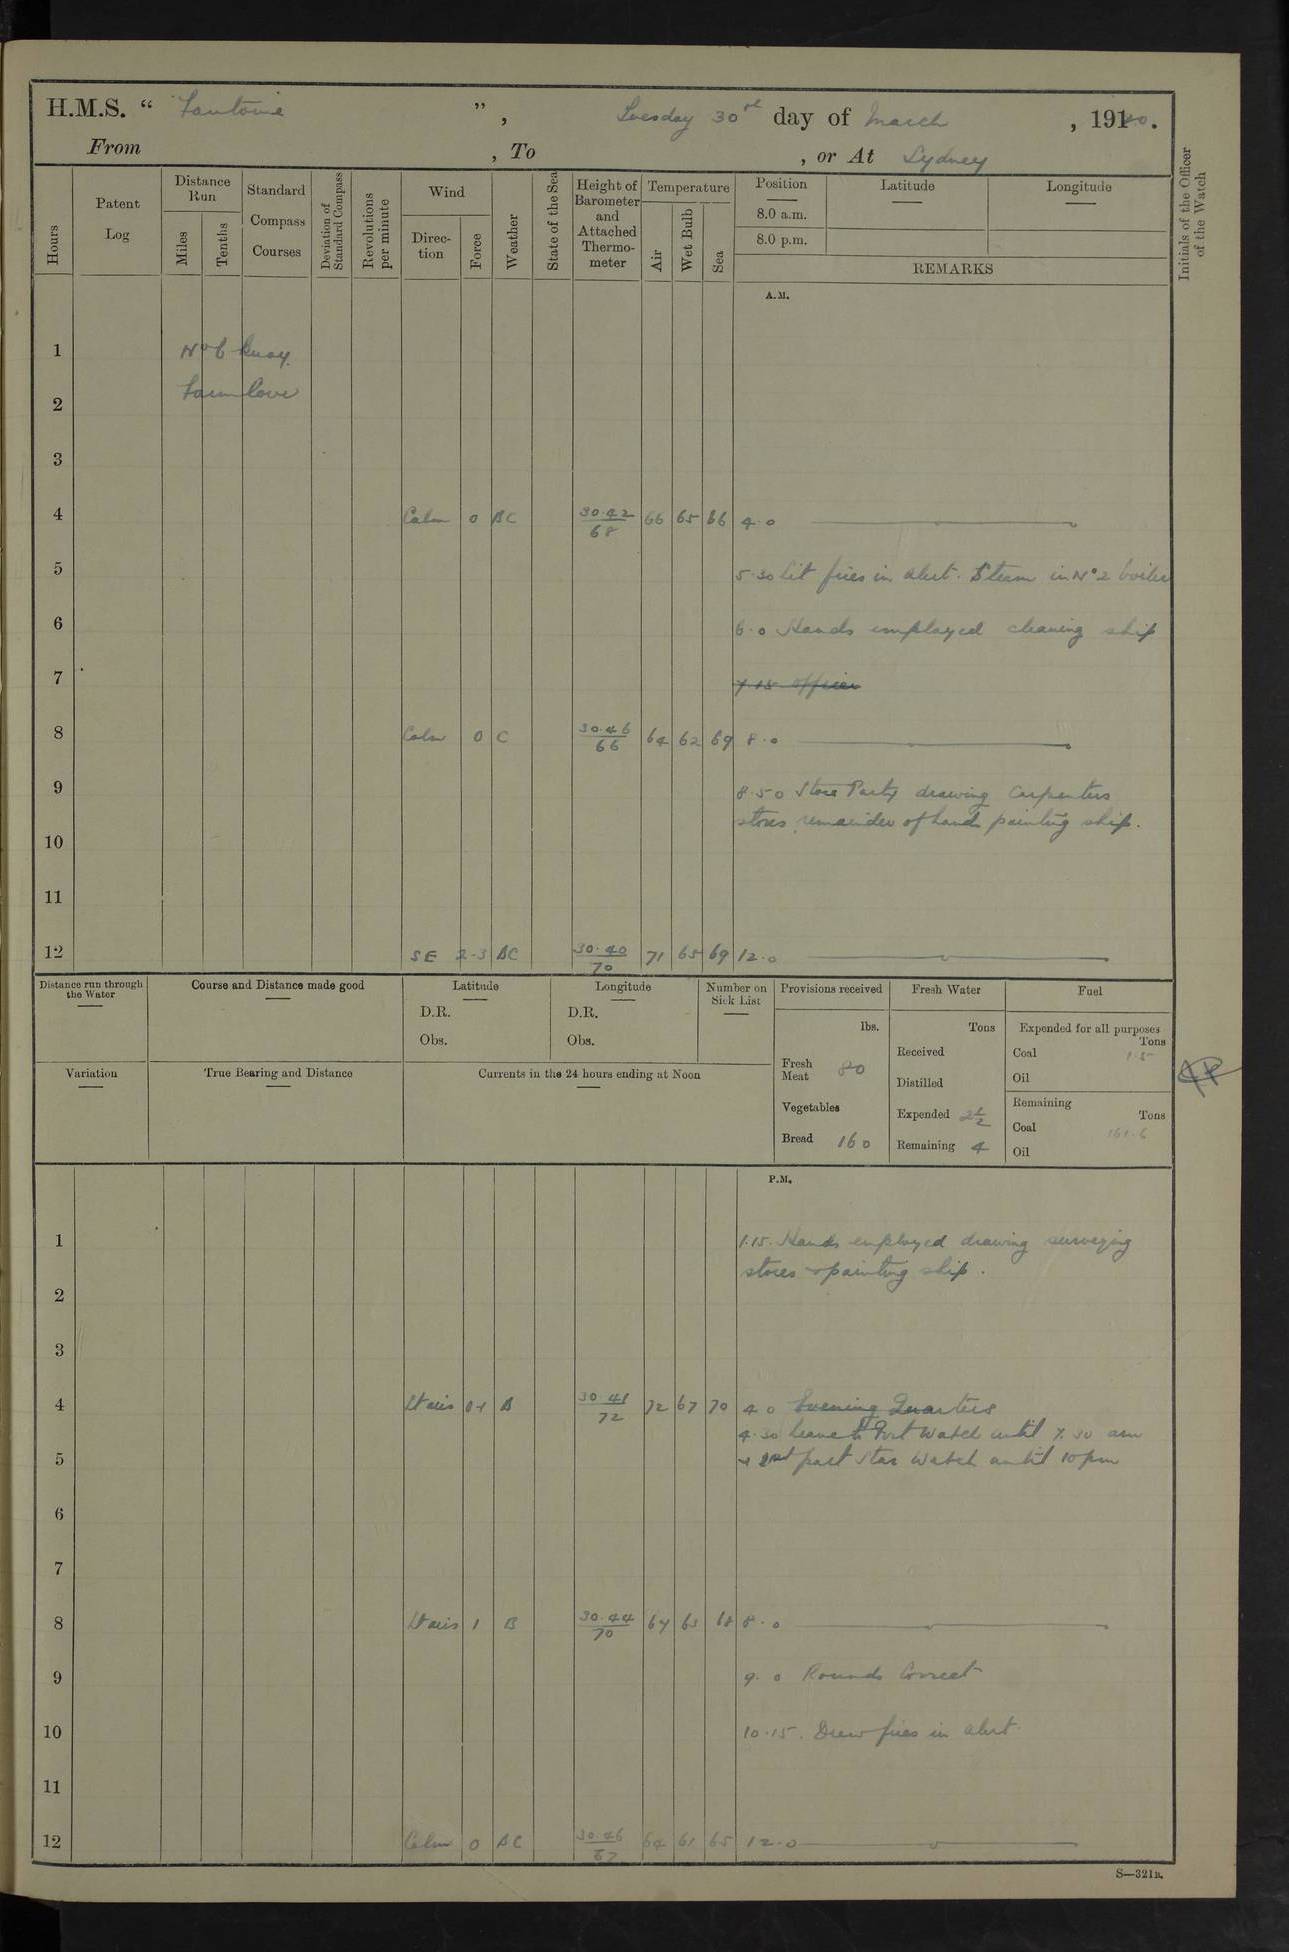 H.M.S. “ Fantome ” , Tuesday 30th day of March , 1920.
From , To , or At Sydney
Hours
Patent Log
Distance Run
Miles
Tenths
Standard Compass Courses
Deviation of Standard Compass
Revolutions per minute
Wind
Direction
Force
Weather
State of the Sea
Height of Barometer and Attached Thermometer
Temperature
Air
Wet Bulb
Sea
Position
8.0 a.m.
8.0 p.m.
Latitude
Longitude
REMARKS
Initials of the Officer of the Watch
A.M.
1 No 6 Buoy.
2 Farm Cove
3
4 Calm 0 BC 30.42 68 66 65 66 4.0
5 5.30 Lit fires in alert. Steam in No 2 boiler
6 6.0 Hands employed cleaning ship
7 7.15 Officer
8 Calm 0 C 30.46 66 64 62 69 8.0
9 8.50 Store Party drawing Carpenters
stores, remainder of hands painting ship.
10
11
12 SE 2-3 BC 30.40 70 71 65 69 12.0
Distance run through the Water
Course and Distance made good
Latitude
D.R.
Obs.
Longitude
D.R.
Obs.
Number on Sick List
Variation
True Bearing and Distance
Currents in the 24 hours ending at Noon
Provisions received
lbs.
Fresh Meat 80
Vegetables
Bread 160
Fresh Water
Tons
Received
Distilled
Expended 2½
Remaining 4
Fuel
Expended for all purposes
Tons
Coal 1.5
Oil
Remaining
Tons
Coal 161.6
Oil
P.M.
1 1.15. Hands employed drawing surveying
stores & painting ship.
2
3
4 Lt airs 0-1 B 30.41 72 72 67 70 4.0 Evening Quarters
4.30 Leave to Port Watch until 7.30 am
5 & 2nd part Star Watch until 10 pm
6
7
8 Lt airs 1 B 30.44 70 67 63 68 8.0
9 9.0 Rounds Correct
10 10.15. Drew fires in alert.
11
12 Calm 0 BC 30.46 67 64 61 65 12.0
S—321B.